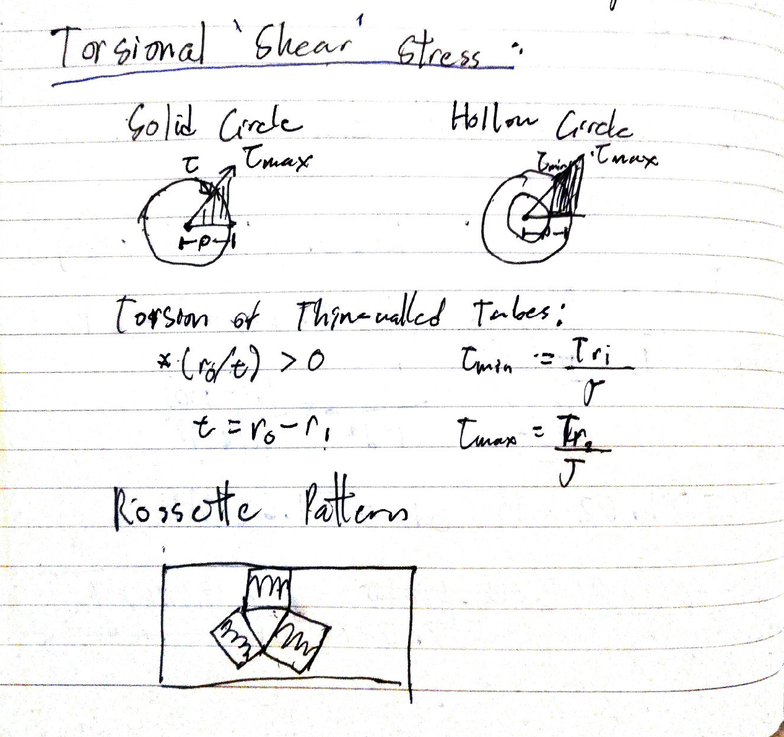 Torsional 'Shear' Stress:
Solid Circle
Hollow Circle
τ τmax
τmin τmax
ρ
Torsion of Thin-walled Tubes:
* (ro/t) > 0
τmin = Tri/J
t = ro - r1
τmax = Tr2/J
Rossette Pattern